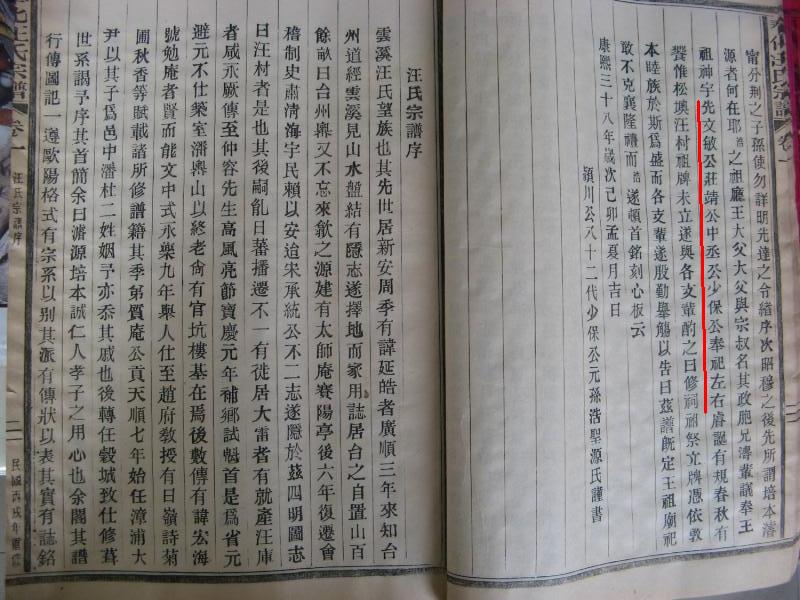 甯分荆之子孫使勿詳明先達之令緒序次昭穆之後先所謂培本濬
源者何在耶浩之祖廳王大父大父與宗叔名其政胞兄濤輩議奉王
祖神宇先文敏公莊靖公中丞公少保公奉祀左右睿謚有規春秋有
餐惟松墺汪村祖牌未立遂與各支輩酌之曰修祠祖祭立牌憑依敦
本睦族於斯爲盛而各支輩遂殷勤舉觴以告曰茲譜既定王祖廟祀
敢不克襄隆禮而浩遂頓首銘刻心板云
康熙三十八年歲次己卯孟夏月吉日
潁川公八十二代少保公元孫浩聖源氏謹書
汪氏宗譜序
雲溪汪氏望族也其先世居新安周季有諱延皓者廣順三年來知台
州道經雲溪見山水盤結有隱志遂擇地而家用誌居台之自置山百
餘畝曰台州嶴又不忘來歙之源建有太師庵賽陽亭後六年復遷會
稽制史肅清海宇民賴以安迨宋承統公不二志遂隱於茲四明圖志
曰汪村者是也其後嗣亂日蕃播遷不一有徙居大雷者有就產汪庫
者咸永厥傳至仲容先生高風亮節寶慶元年補鄉試魁首是爲省元
避元不仕築室潘嶴山以終老尙有官坑樓基在焉後數傳有諱宏海
號勉庵者賢而能文中式永樂九年舉人仕至趙府敎授有日嶺詩菊
圃秋香等賦載諸所修譜籍其季弟質庵公貢天順七年始任漳浦大
尹以其子爲邑中潘杜二姓姻予亦忝其戚也後轉任穀城致仕修葺
世系謁予序其首簡余曰濬源培本誠仁人孝子之用心也余閣其譜
行傳圖記一遵歐陽格式有宗系以别其派有傳狀以表其實有誌銘
汪氏宗譜
卷一
汪氏宗譜序
二
民國丙戌年重修